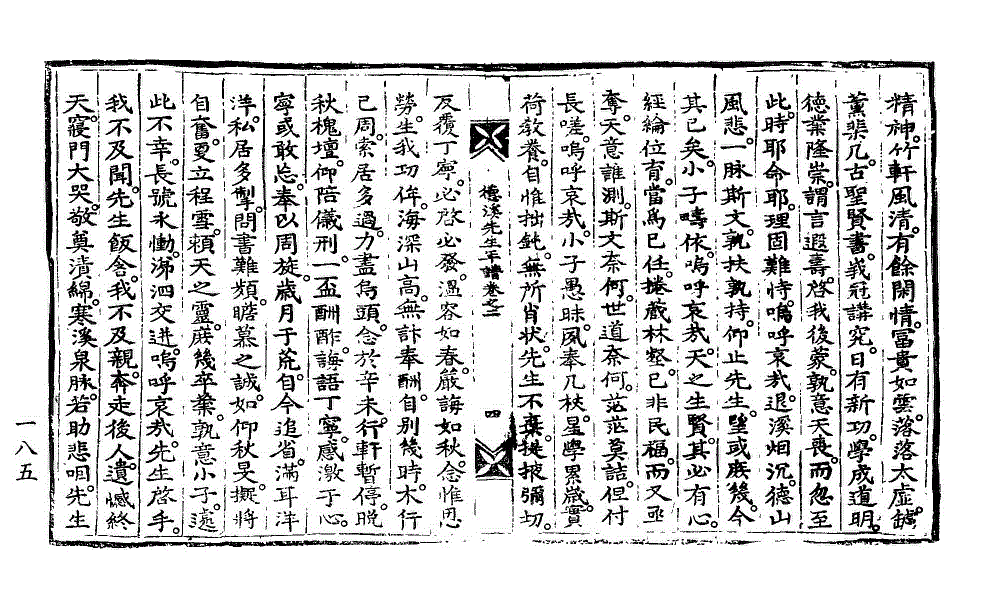 精神。竹軒風清。有餘閑情。富貴如雲。落落太虛。鑪
薰棐几。古聖賢書。峩冠講究。日有新功。學成道明。
德業隆崇。謂言遐壽。啓我後蒙。孰意天喪。而忽至
此。時耶命耶。理固難恃。嗚呼哀哉。退溪烟沉。德山
風悲。一脉斯文。孰扶孰持。仰止先生。墜或庶幾。今
其已矣。小子疇依。嗚呼哀哉。天之生賢。其必有心。
經綸位育。當爲已任。捲藏林壑。已非民福。而又亟
奪。天意誰測。斯文奈何。世道奈何。茫茫莫詰。但付
長嗟。嗚呼哀哉。小子愚昧。夙奉几杖。星學累歲。實
荷敎養。自惟拙鈍。無所肖狀。先生不棄。提掖彌切。
德溪先生年譜卷之二
四
反覆丁寧。必啓必發。溫容如春。嚴誨如秋。念惟恩
勞。生我功侔。海深山高。無計奉酬。自別幾時。木行
已周。索居多過。力盡烏頭。念於辛未。行軒暫停。晩
秋槐壇。仰陪儀刑。一盃酬酢。誨語丁寧。感激于心。
寧或敢忘。奉以周旋。歲月于荒。自今追省。滿耳洋
洋。私居多掣。問書難頻。瞻慕之誠。如仰秋旻。擬將
自奮。更立程雪。頼天之靈。庶幾卒業。孰意小子。遽
此不幸。長號永慟。涕泗交迸。嗚呼哀哉。先生啓手。
我不及聞。先生飯含。我不及親。奔走後人。遺憾終
天。寢門大哭。敬奠漬綿。寒溪泉脉。若助悲咽。先生
一八五